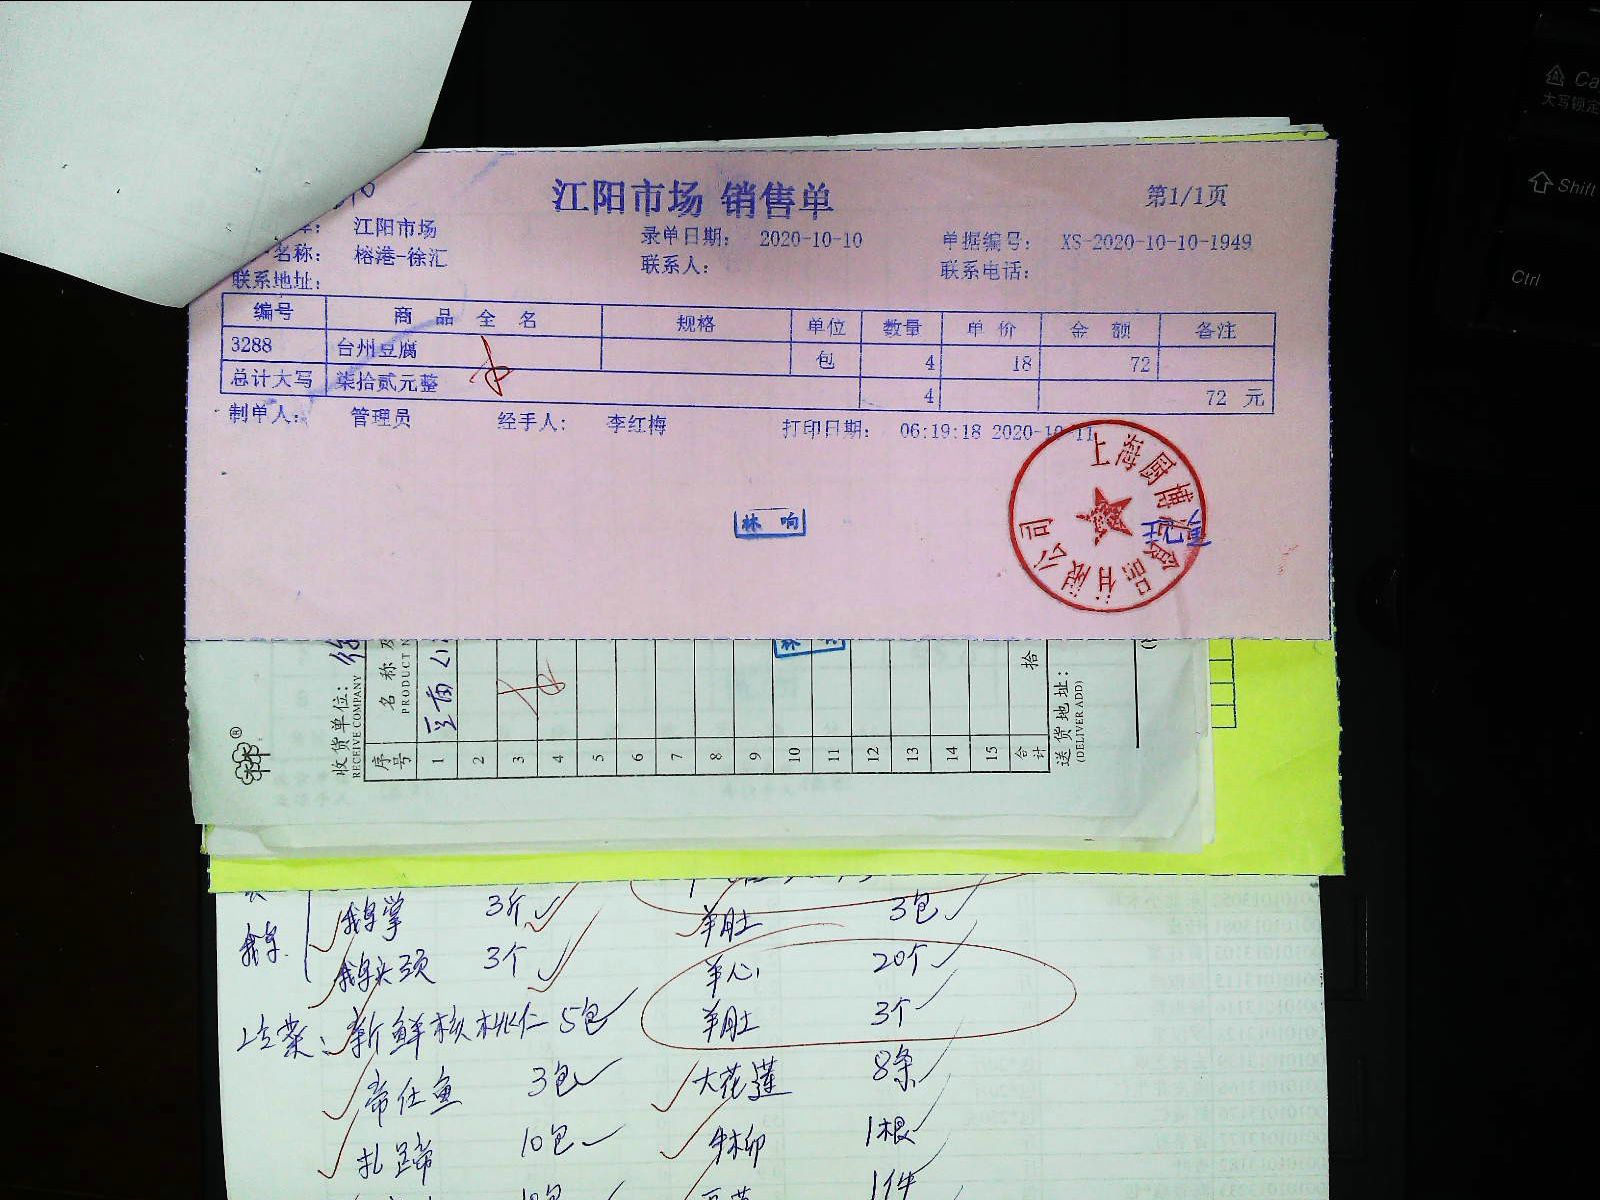 江阳市场 销售单
第1/1页
江阳市场
录单日期： 2020-10-10
单据编号： XS-2020-10-10-1949
名称： 榕港-徐汇
联系人：
联系电话：
联系地址：
编号 商品全名 规格 单位 数量 单价 金额 备注
3288 台州豆腐 包 4 18 72
总计大写 柒拾贰元整 4 72 元
制单人： 管理员 经手人： 李红梅 打印日期： 06:19:18 2020-10-11
上海厨博汇食品有限公司
林响
收货单位：
RECEIVE COMPANY
序号 名称及
PRODUCT N
1
2
3
4
5
6
7
8
9
10
11
12
13
14
15
合计 拾
送货地址：
(DELIVER ADD)
鹅掌 3斤 羊肚 3包
鹅头颈 3个 羊心 20个
新鲜核桃仁 5包 羊肚 3个
帝仕鱼 3包 大花莲 8条
扎蹄 10包 牛柳 1根
1件
Shift
Ctrl
大写锁定